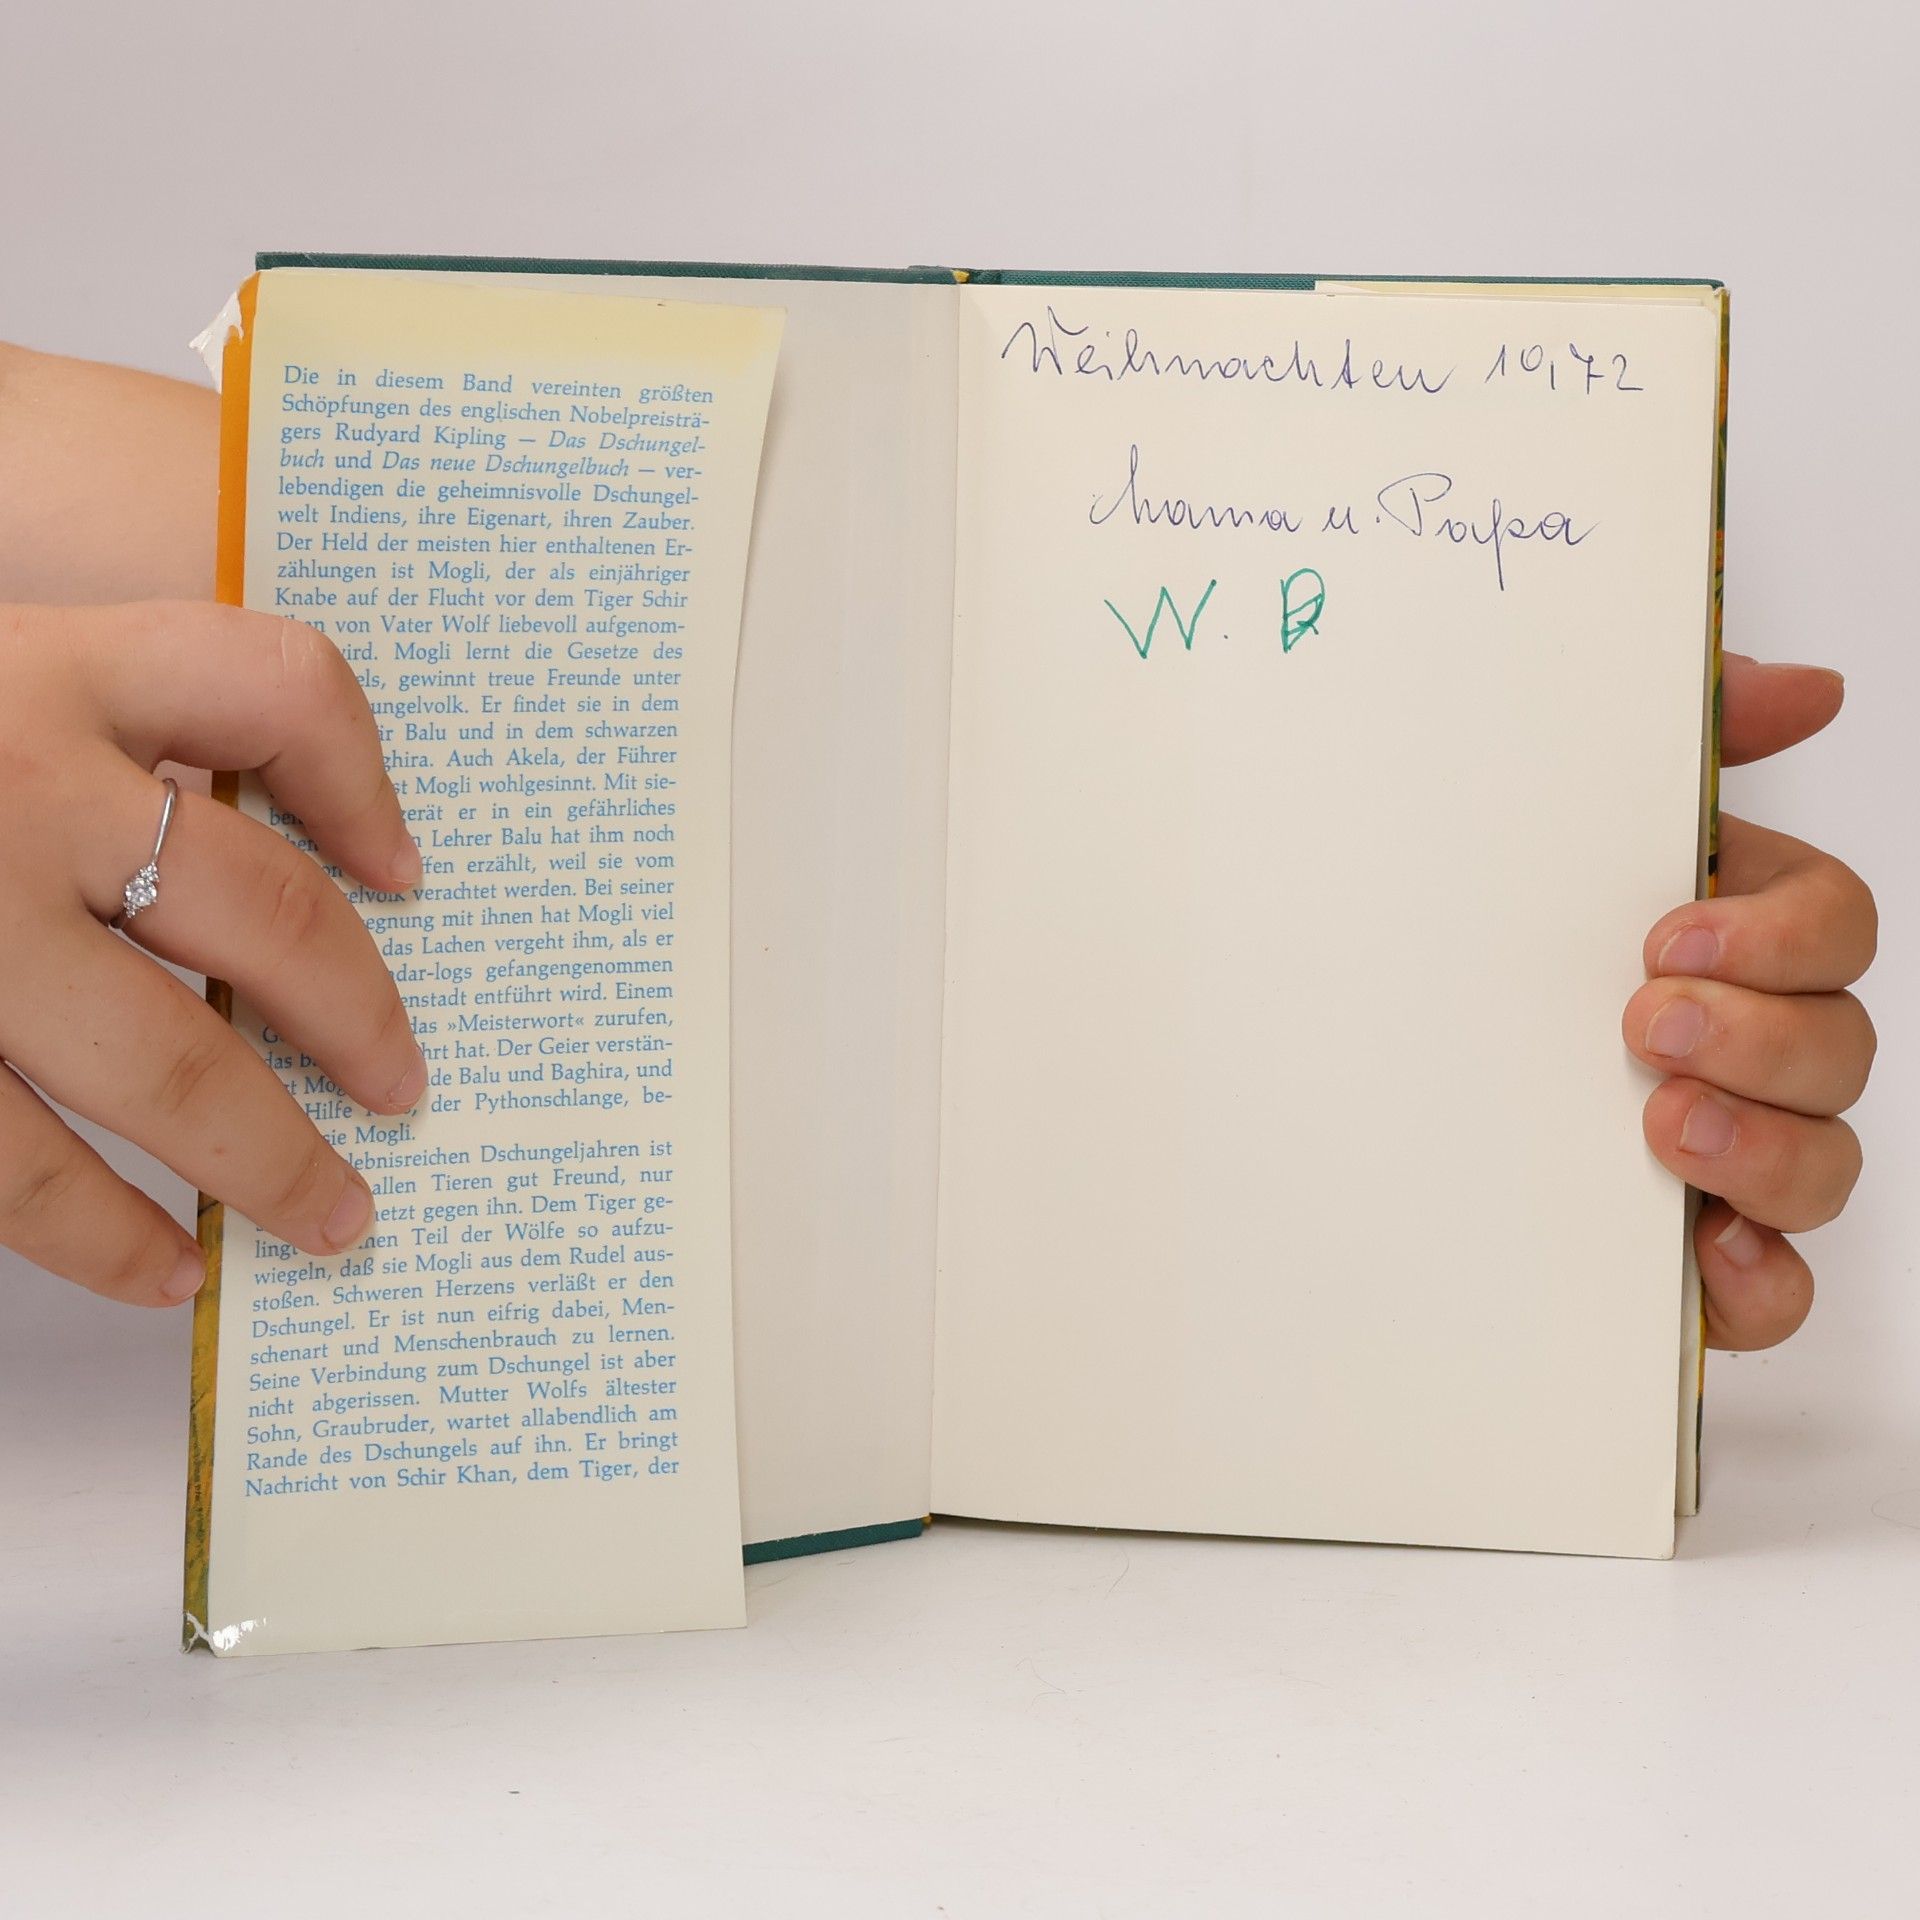 Die in diesem Band vereinten größten
Schöpfungen des englischen Nobelpreisträ-
gers Rudyard Kipling — Das Dschungel-
buch und Das neue Dschungelbuch — ver-
lebendigen die geheimnisvolle Dschungel-
welt Indiens, ihre Eigenart, ihren Zauber.
Der Held der meisten hier enthaltenen Er-
zählungen ist Mogli, der als einjähriger
Knabe auf der Flucht vor dem Tiger Schir
von Vater Wolf liebevoll aufgenom-
wird. Mogli lernt die Gesetze des
els, gewinnt treue Freunde unter
ungelvolk. Er findet sie in dem
Balu und in dem schwarzen
ghira. Auch Akela, der Führer
st Mogli wohlgesinnt. Mit sie-
gerät er in ein gefährliches
Lehrer Balu hat ihm noch
ffen erzählt, weil sie vom
elvolk verachtet werden. Bei seiner
egnung mit ihnen hat Mogli viel
das Lachen vergeht ihm, als er
dar-logs gefangengenommen
enstadt entführt wird. Einem
das »Meisterwort« zurufen,
das hrt hat. Der Geier verstän-
de Balu und Baghira, und
Hilfe der Pythonschlange, be-
sie Mogli.
lebnisreichen Dschungeljahren ist
allen Tieren gut Freund, nur
hetzt gegen ihn. Dem Tiger ge-
lingt Teil der Wölfe so aufzu-
wiegeln, daß sie Mogli aus dem Rudel aus-
stoßen. Schweren Herzens verläßt er den
Dschungel. Er ist nun eifrig dabei, Men-
schenart und Menschenbrauch zu lernen.
Seine Verbindung zum Dschungel ist aber
nicht abgerissen. Mutter Wolfs ältester
Sohn, Graubruder, wartet allabendlich am
Rande des Dschungels auf ihn. Er bringt
Nachricht von Schir Khan, dem Tiger, der
Weihnachten 19,72
Mama u. Papa
W.